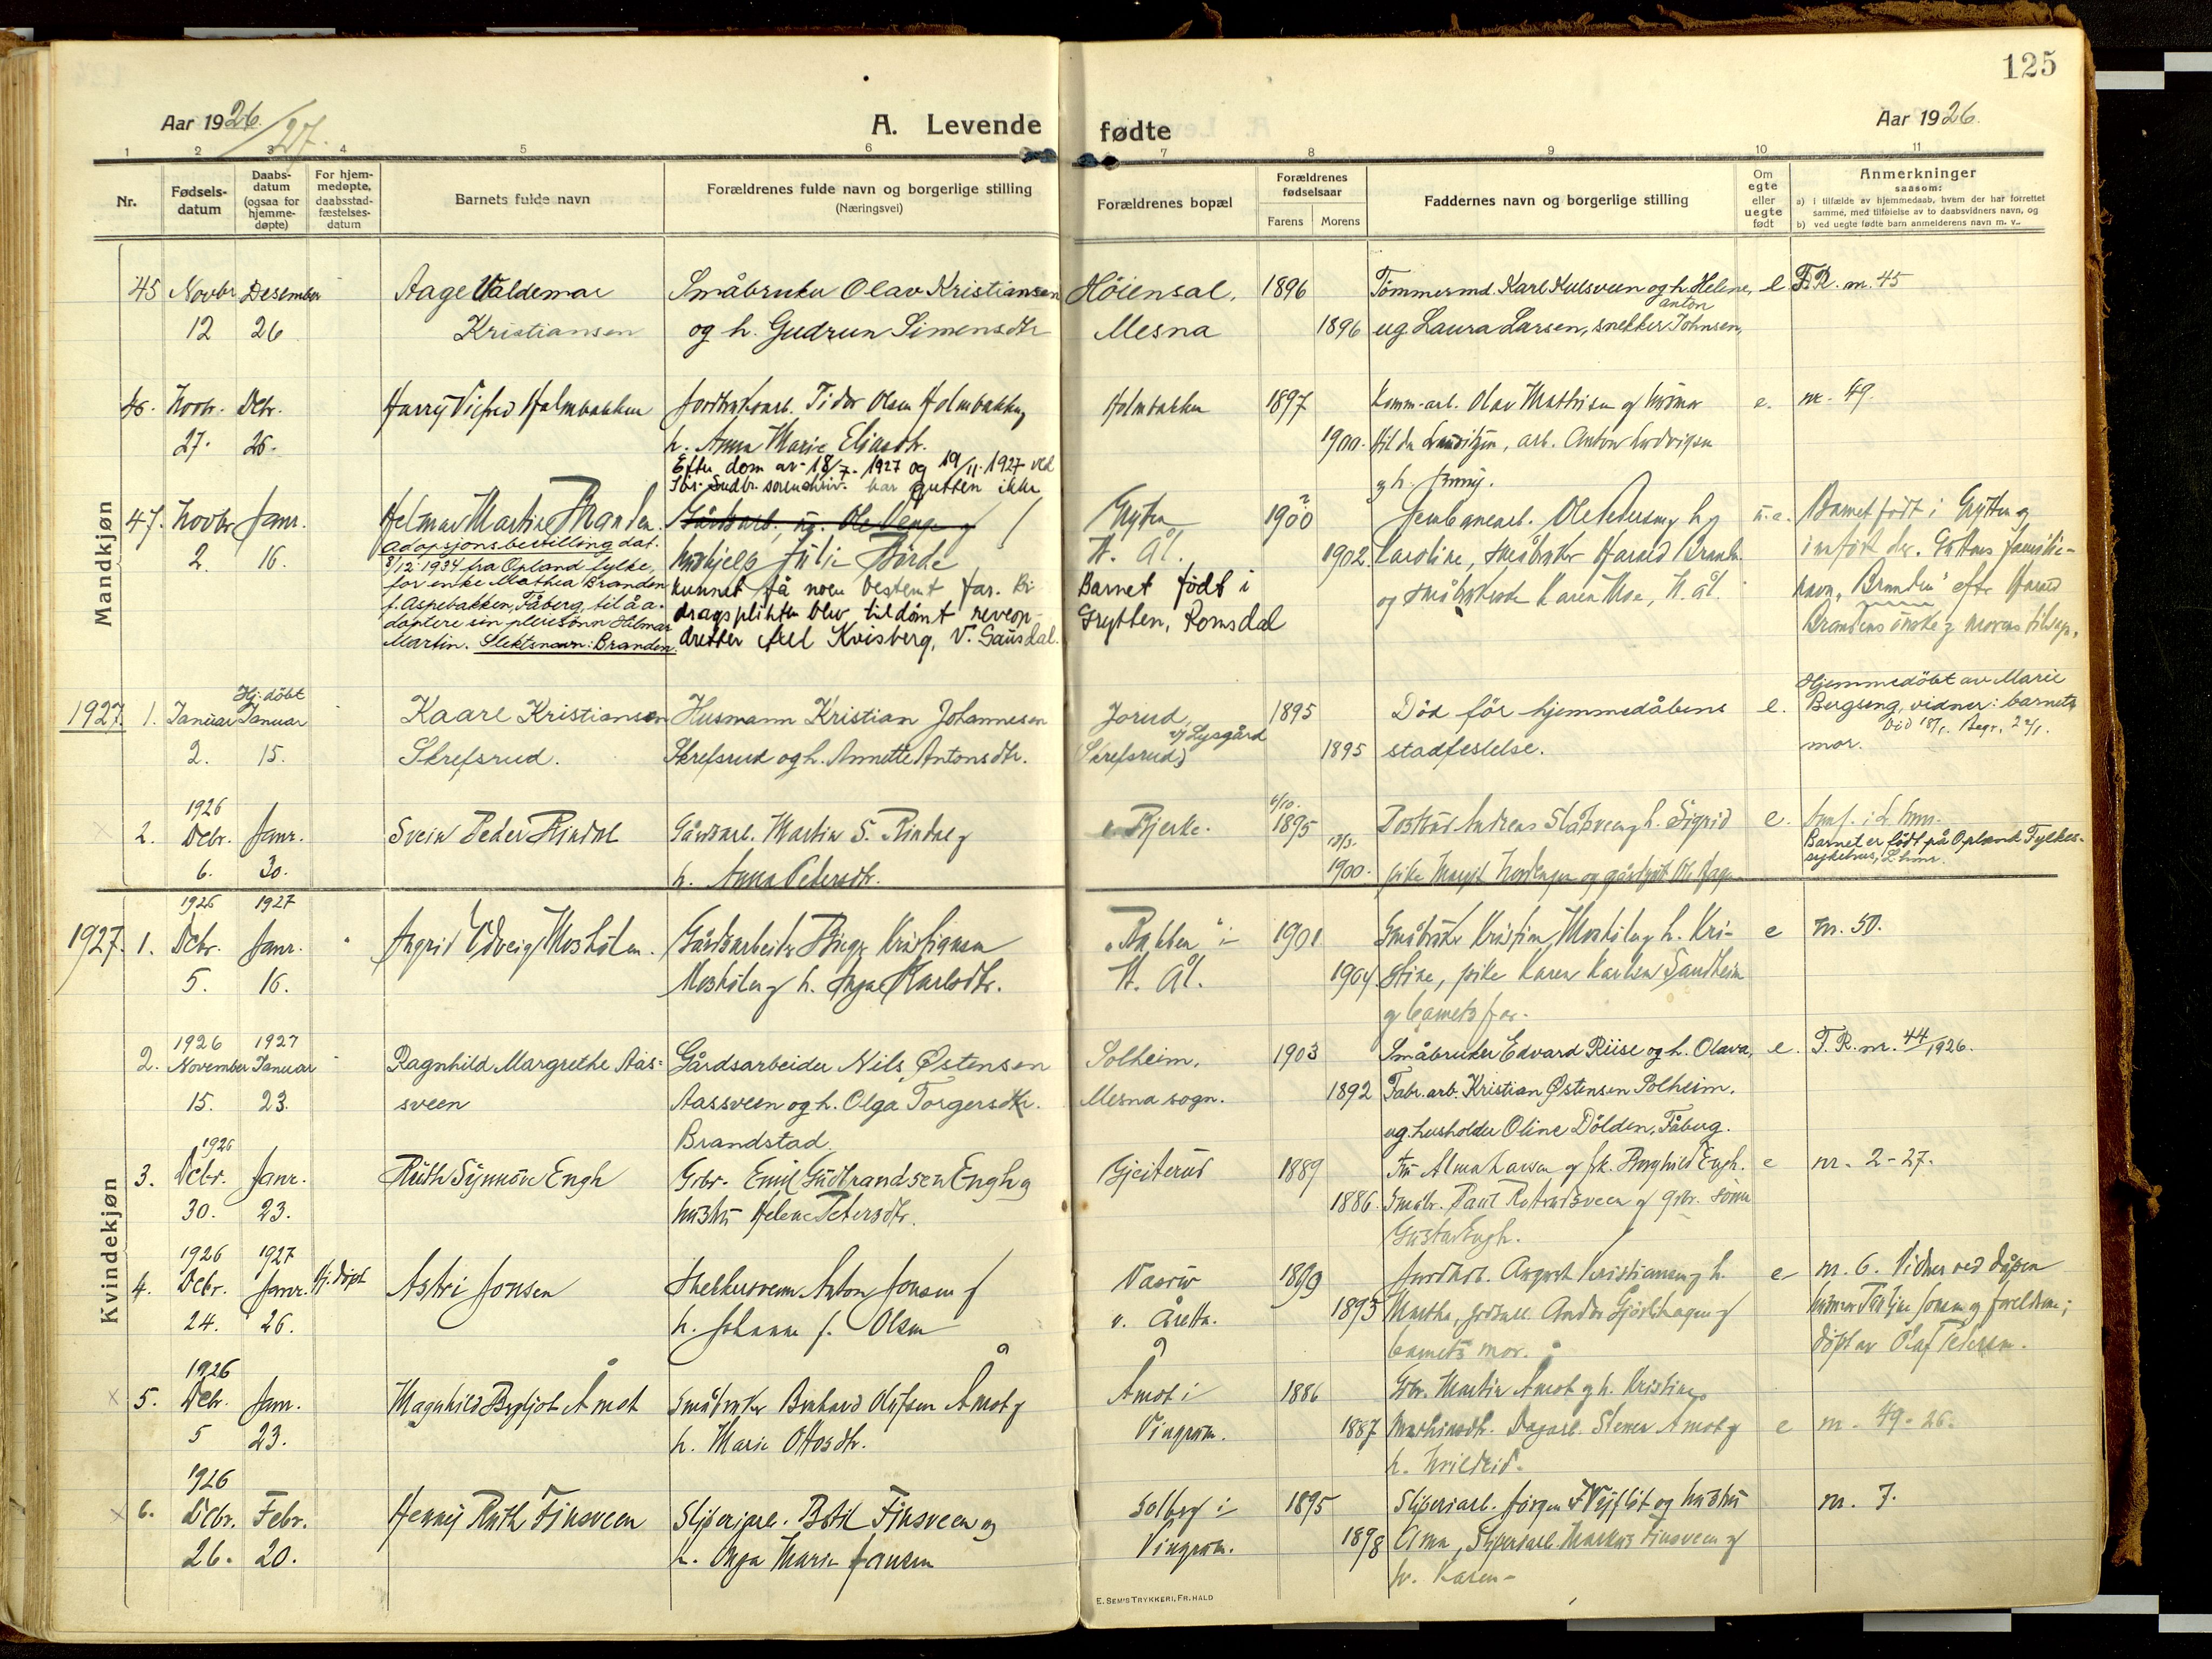 125
Aar 1926/27.
A. Levende fødte
Aar 1926.
1 2 3 4 5 6 7 8 9 10 11
Nr.
Fødsels-
datum
Daabs-
datum
(ogsaa for
hjemme-
døpte)
For hjem-
medøpte,
daabsstad-
fæstelses-
datum
Barnets fulde navn
Forældrenes fulde navn og borgerlige stilling
(Næringsvei)
Forældrenes bopæl
Forældrenes
fødselsaar
Farens Morens
Faddernes navn og borgerlige stilling
Om
egte
eller
uegte
født
Anmerkninger
saasom:
a) i tilfælde av hjemmedaab, hvem der har forrettet
samme, med tilføielse av to daabsvidners navn, og
b) ved uegte fødte barn anmelderens navn m. v..
Mandkjøn
45 Novbr Desember Aage Valdemar Småbruker Olav Kristiansen Höiensal, 1896 Tömmermd. Karl Kulsveen og h. Helene, e. F.R. nr. 45
anton
12 26 Kristiansen og h. Gudrun Simensdtr Mesna 1896 ug. Laura Larsen, snekker Johnsen,
46. Novbr. Dcbr. Harry Vilfred Holmbakken Jordbruksarb. Tidor Olsen Holmbakken Holmbakken 1897 Komm-arb. Olav Mathisen og e. nr. 49.
27. 26. h. Anna Marie Eliasdtr. 1900. arb. Anton Ludvigsen
Efter dom av 18/7-1927 og 19/11-1927 ved
Sör-Gudbr. sorenskriv. har gutten ikke
og h. Jenny.
47. Novbr Janr. Helmar Martin Branden. Gårdsarb. ug. Ole Venge og Grytten 1900 ? Jernbanearb. Ole Pedersen og h. u.e. Barnet født i Grytten og
2. 16. Adopsjonsbevilling dat. hushjelp Julie Börde N. Ål. 1902. Karoline, småbruker Harald Branden innført der. Guttens familie-
8/12 1934 fra Opland fylke,
for enke Mathea Branden kunnet få noen bestemt far. Bi- Barnet født i og småbruker Karen Moe, N. Ål. navn "Branden" efter Harald
f. Aspebakken, Fåberg, til å a- dragspliktig blev tildömt reveop- Grytten, Romsdal Brandens önske og morens tilsagn.
doptere sin pleiesönn Hilmar dretter Axel Kvisberg, V. Gausdal.
Martin. Slektsnavn: Branden.
1927. 1. Januar Hj. döbt Januar Kaare Kristiansen Husmann Kristian Johannesen Jorud, 1895 Död för hjemmedåbens e. Hjemmedöbt av Marie
v/ Lysgård Bergseng, vidner: barnets
2. 15. Skrefsrud. Skrefsrud og h. Annette Antonsdtr. (Skrefsrud) 1895 stadfestelse. mor. Död 18/1. Begr. 22/1.
1926
2. Dcbr. Janr. Svein Peder Rindal Gårdsarb. Martin S. Rindal og Bjerke. 6/10. 1895 Postbud Andreas Slåsveen og h. Sigrid e. i L.hmr.
6. 30. h. Anna Pedersdtr. 13/3. 1900. pike Margit Nordengen og Barnet er født på Opland Fylkes-
sykehus, L.hmr.
Kvindekjøn
1926 1927
1927. 1. Dcbr. Janr. Ingrid Solveig Mosholen. Gårdsarbeider Birger Kristiansen "Bakken" i 1901 Småbruker Kristian Mosholen og h. Kri- e nr. 50.
5. 16. Mosholen og h. Inga Karlsdtr. N. Ål. 1904. stine, pike Karen Karlsen Sandheim
og barnets far.
1926 1927
2. November Januar Ragnhild Margrethe Aas- Gårdsarbeider Nils Østensen Solheim, 1903 Småbruker Edvard Riise og h. Olava, e. F.R. nr. 44/1926.
15. 23. sveen Aassveen og h. Olga Torgersdtr. Mesna sogn. 1892 Fabr. arb. Kristian Østensen Solheim.
Brandstad. ug. husholder Oline Dölden, Fåberg.
1926
3. Dcbr. Janr. Ruth Synnöve Engh Grbr. Emil Gudbrandsen Engh og Gjeiterud 1889 Fru Alma Larsen og frk. Borghild Engh. e nr. 2-27.
30. 23. hustru Helene Petersdtr. 1886. Småbr. Paul Rotrudsveen og grbr. sönn
Gustav Engh.
1926 1927
4. Dcbr. Janr. Hj. döpt Astri Jonsen Snekkersvenn Anton Jonsen og Vasrud 1899 Jordarb. August Kristiansen og h. e- nr. 6. Vidner ved dåpen
24. 26. h. Johanne f. Olsen v. Åretta. 1893 Martha, jordarb. Anders Gjörlihagen og Jonsen og foreldrene;
barnets mor. döpt av Olaf Petersen.
1926
x 5. Dcbr. Janr. Magnhild Bergljot Åmot Småbruker Bernhard Olufsen Åmot og Åmot i 1886 Grbr. Martin Åmot og h. Kristine
5 23. h. Marie Ottosdtr. Vingrom. 1887 Mathinsdtr. Dagarb. Stener Åmot og e nr. 49-26.
h.
1926
x 6. Dcbr. Febr. Henny Ruth Finsveen Sliperiarb. Botil Finsveen og Solberg i 1895 Sliperiarb. Jörgen og hustru nr. 7.
26. 20. h. Inga Marie Jensen Vingrom. 1898 Alma, Sliperiarb. Markus Finsveen og
h. Karen-
E. SEM'S TRYKKERI, FR.HALD